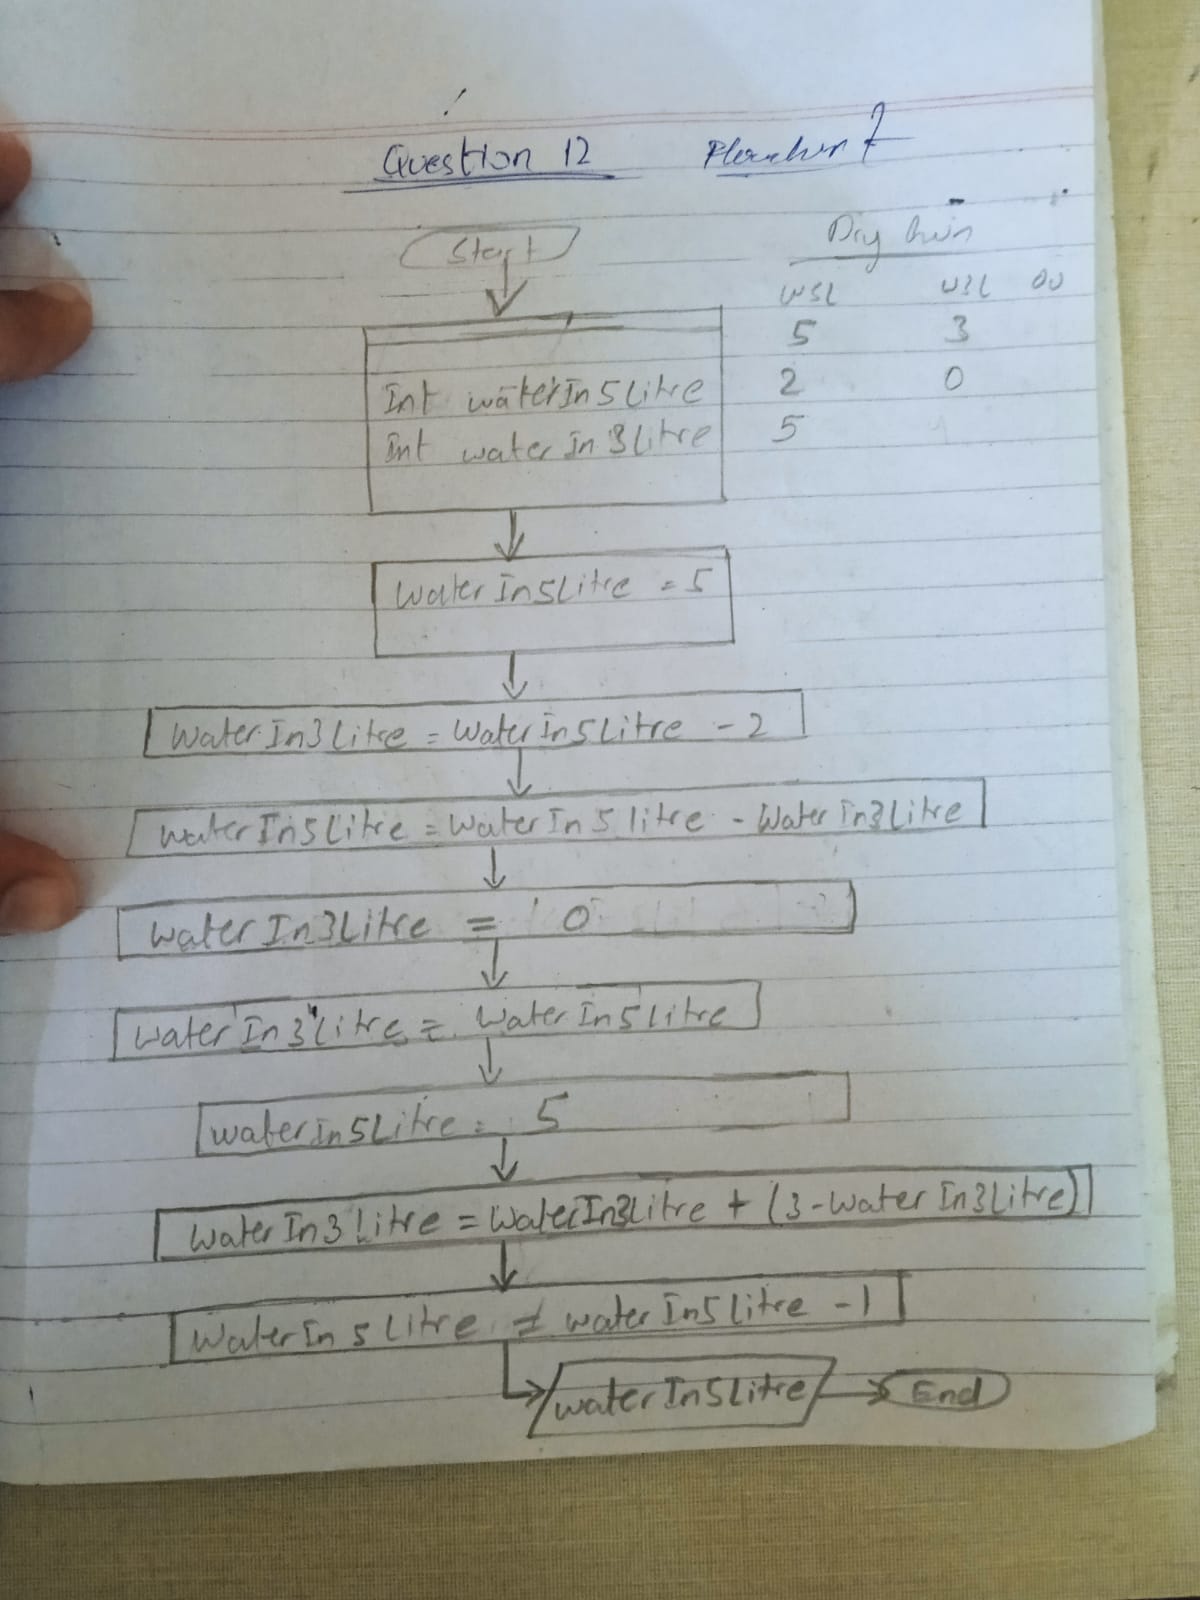 Question 12
Start
Dry Run
W5L W3L
5 3
2 0
5
Int waterIn5Litre
Int waterIn3litre
WaterIn5Litre = 5
WaterIn3Litre = WaterIn5Litre - 2
WaterIn5Litre = WaterIn5litre - WaterIn3Litre
WaterIn3Litre = 0
WaterIn3Litre = WaterIn5litre
waterIn5Litre = 5
WaterIn3Litre = WaterIn3Litre + (3-WaterIn3Litre)
WaterIn5Litre = waterIn5Litre - 1
waterIn5Litre
End